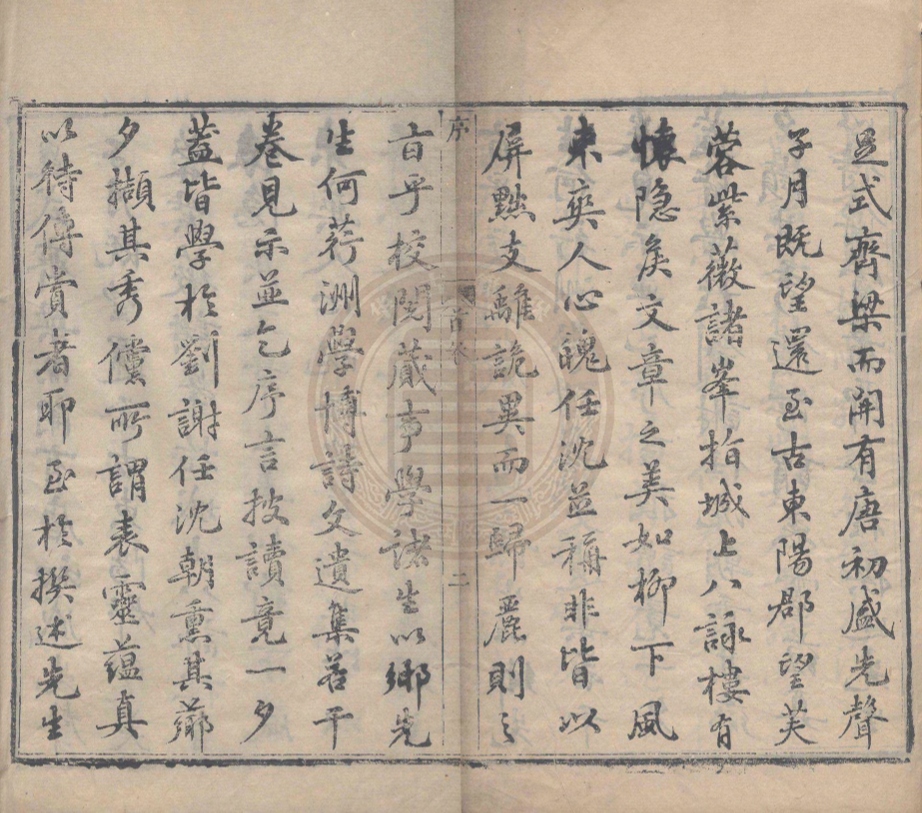 足式齊梁而開有唐初盛先聲
子月既望還至古東陽郡望芙
蓉紫薇諸峯指城上八詠樓有
懷隱矦文章之美如柳下風
來爽人心魄任沈並稱非皆以
屏黜支離詭異而一歸麗則之
旨乎校閱蕆事學諸生以鄉先
生何荇洲學博詩文遺集若干
卷見示並乞序言披讀竟一夕
葢皆學於劉謝任沈朝熏其薌
夕擷其秀儻所謂表靈蘊真
以待傳賞者耶至於撰述先生
序
首卷
二